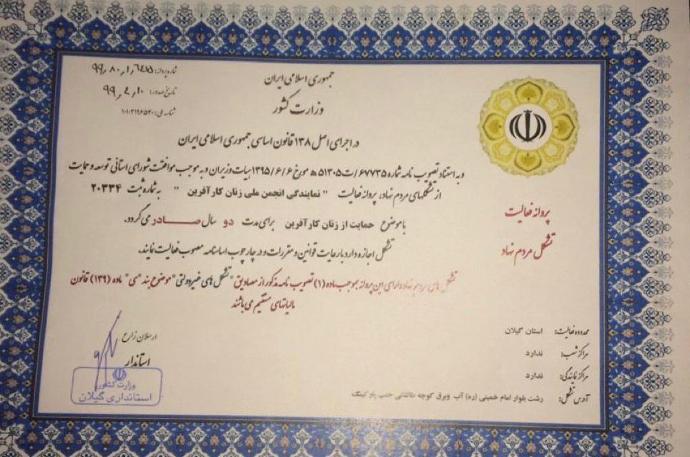 جمهوری اسلامی ایران
وزارت کشور
شماره پروانه:
تاریخ صدور: ۹۹٫۴٫۱۰
شناسه ملی:
در اجرای اصل ۱۳۸ قانون اساسی جمهوری اسلامی ایران
و به استناد تصویب نامه شماره ۶۷۷۳۵/ت۵۱۳۰۵ه مورخ ۱۳۹۵/۶/۶ هیات وزیران و به موجب موافقت شورای استانی توسعه و حمایت
از تشکلهای مردم نهاد، پروانه فعالیت " نمایندگی انجمن ملی زنان کارآفرین " به شماره ثبت ۲۰۳۳۴
با موضوع حمایت از زنان کارآفرین برای مدت دو سال صادر می گردد.
تشکل اجازه دارد با رعایت قوانین و مقررات و در چارچوب اساسنامه مصوب فعالیت نمایند.
تشکل های مردم نهاد دارای این پروانه بموجب ماده (۱) تصویب نامه مذکور از مصادیق "تشکل های غیردولتی" موضوع بند "ی" ماده (۱۳۹) قانون
مالیاتهای مستقیم می باشند
پروانه فعالیت
تشکل مردم نهاد
محدوده فعالیت: استان گیلان
مراکز شعب: ندارد
مراکز نمایندگی: ندارد
آدرس تشکل: رشت بلوار امام خمینی (ره) آب وبرق کوچه طالقانی جنب پارکینگ
ارسلان زارع
استاندار
وزارت کشور
استانداری گیلان